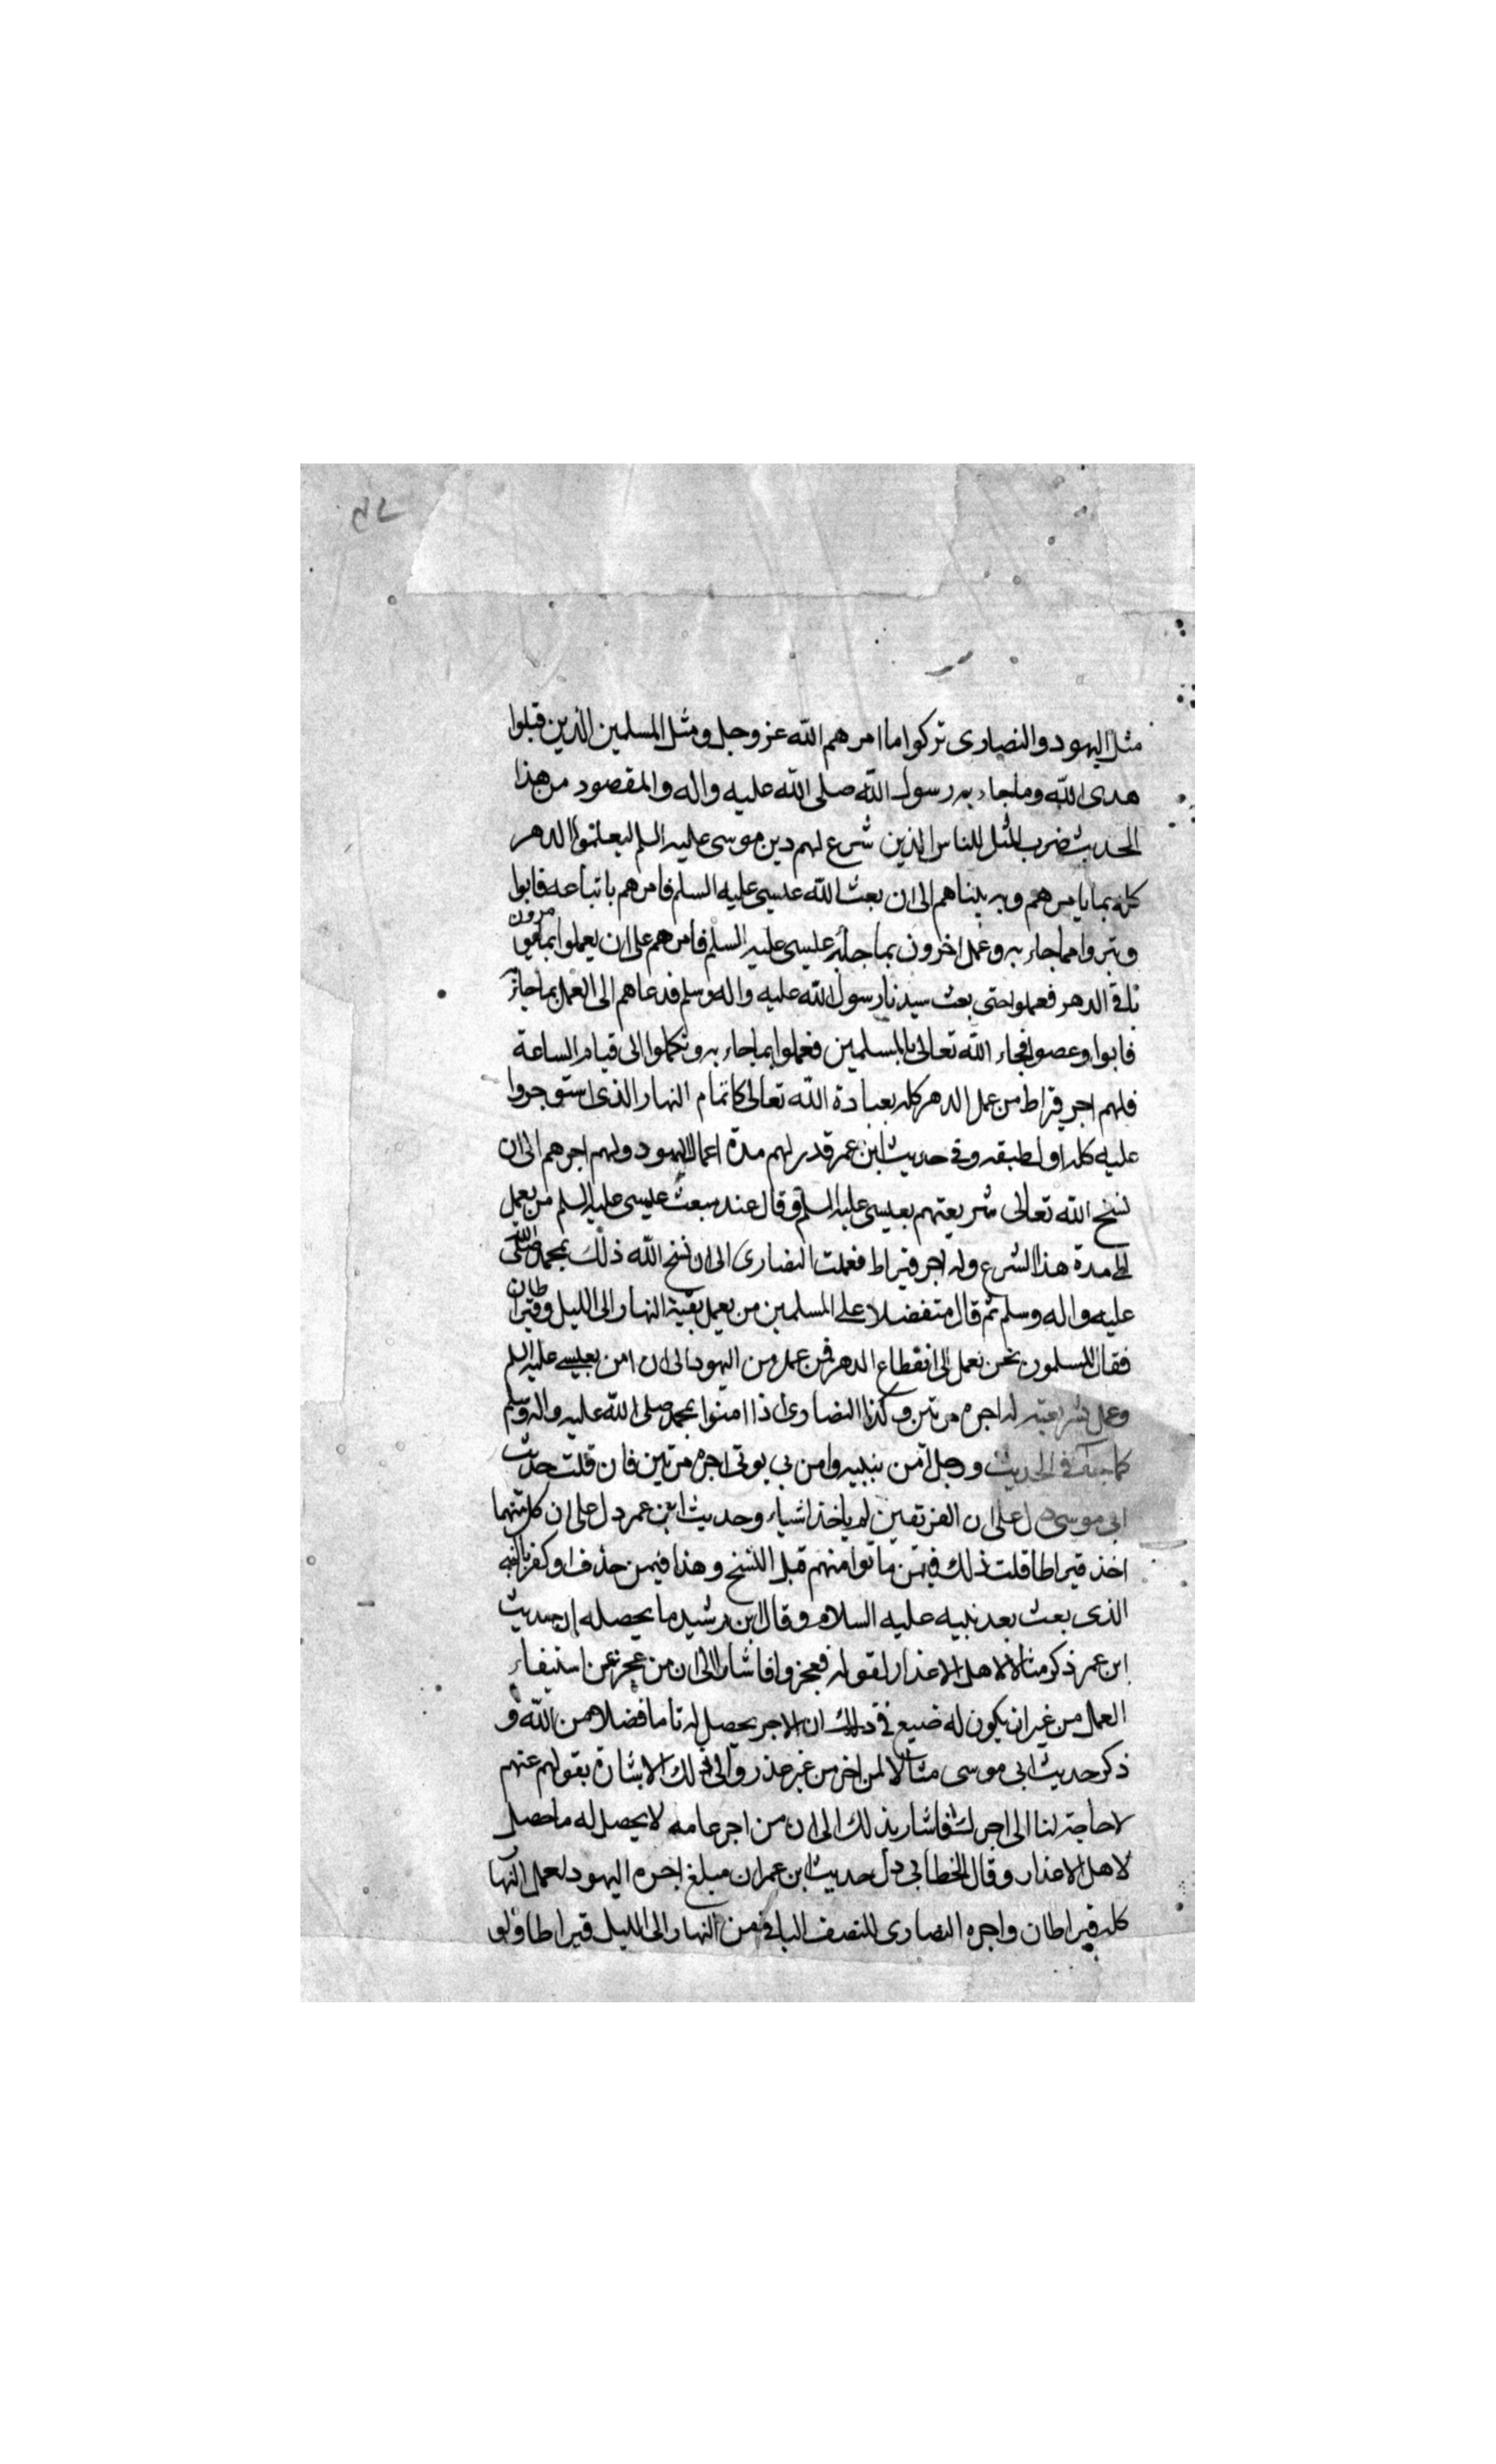 مثل اليهود والنصارى تركوا ما امرهم الله عز وجل ومثل المسلمين الذين قبلوا
هدى الله وما جاء به رسول الله صلى الله عليه واله والمقصود من هذا
الحديث ضرب المثل للناس الذين شرع لهم دين موسى عليه السلم ليعملوا الدهر
كله بما يامرهم وبه ينهاهم الى ان بعث الله عيسى عليه السلم فامرهم باتباعه فابوا
وتبروا مما جاء به وعمل اخرون بما جاء به عيسى عليه السلم فامرهم على ان يعملوا بما يومرون
باقي الدهر فعملوا حتى بعث سيدنا رسول الله عليه واله وسلم فدعاهم الى العمل بما جاء به
فابوا وعصوا فجاء الله تعالى بالمسلمين فعملوا بما جاء به وتكملوا الى قيام الساعة
فلهم اجر قراط من عمل الدهر كله بعبادة الله تعالى كاتمام النهار الذي استوجروا
عليه كله اول طبقه وفي حديث ابن عمر قدر لهم مدة اعمال اليهود ولهم اجرهم الى ان
نسخ الله تعالى شريعتهم بعيسى عليه السلم وقال عند مبعث عيسى عليه السلم من يعمل
الى مدة هذا الشرع وله اجر قيراط فعملت النصارى الى ان نسخ الله ذلك بمحمد صلى الله
عليه واله وسلم ثم قال متفضلا على المسلمين من يعمل بقية النهار الى الليل وقيراطان
فقال المسلمون نحن نعمل الى انقطاع الدهر فمن عمل من اليهود الى ان امن بعيسى عليه السلم
وعمل بشريعته له اجره مرتين وكذا النصارى اذا امنوا بمحمد صلى الله عليه واله وسلم
كما في الحديث ورجل آمن بنبيه وامن بي يوتى اجره مرتين فان قلت حديث
ابي موسى دل على ان الفريقين لم ياخذا شياء وحديث ابن عمر دل على ان كل منهما
اخذ قيراطا قلت ذلك فيمن ماتوا منهم قبل النسخ وهذا فيمن حذف او كفر بالنبي
الذي بعث بعد نبيه عليه السلام وقال ابن رشيد ما يحصله ان حديث
ابن عمر ذكر مثالا لاهل الاعذار لقوله فعجزوا فاشار الى ان من عجز عن استيفاء
العمل من غير ان يكون له ضيع في ذلك ان الاجر يحصل له تاما فضلا من الله و
ذكر حديث ابي موسى مثالا لمن اخر من غير عذر والى ذلك الاشارة بقولهم عنهم
لا حاجة لنا الى اجرك فاشار بذلك الى ان من اجر عامه لا يحصل له ما حصل
لاهل الاعذار وقال الخطابي دل حديث ابن عمر ان مبلغ اجره اليهود لعمل النها
كله قيراطان واجره النصارى للنصف الباقي من النهار الى الليل قيراطا ولو